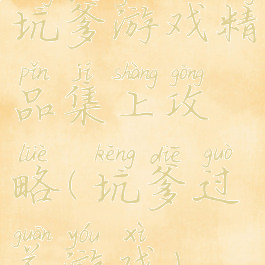 坑爹游戏精
pǐn jí shàng gōng
品集上攻
lüè kēng diē guò
略(坑爹过
quān yóu xì
游戏)